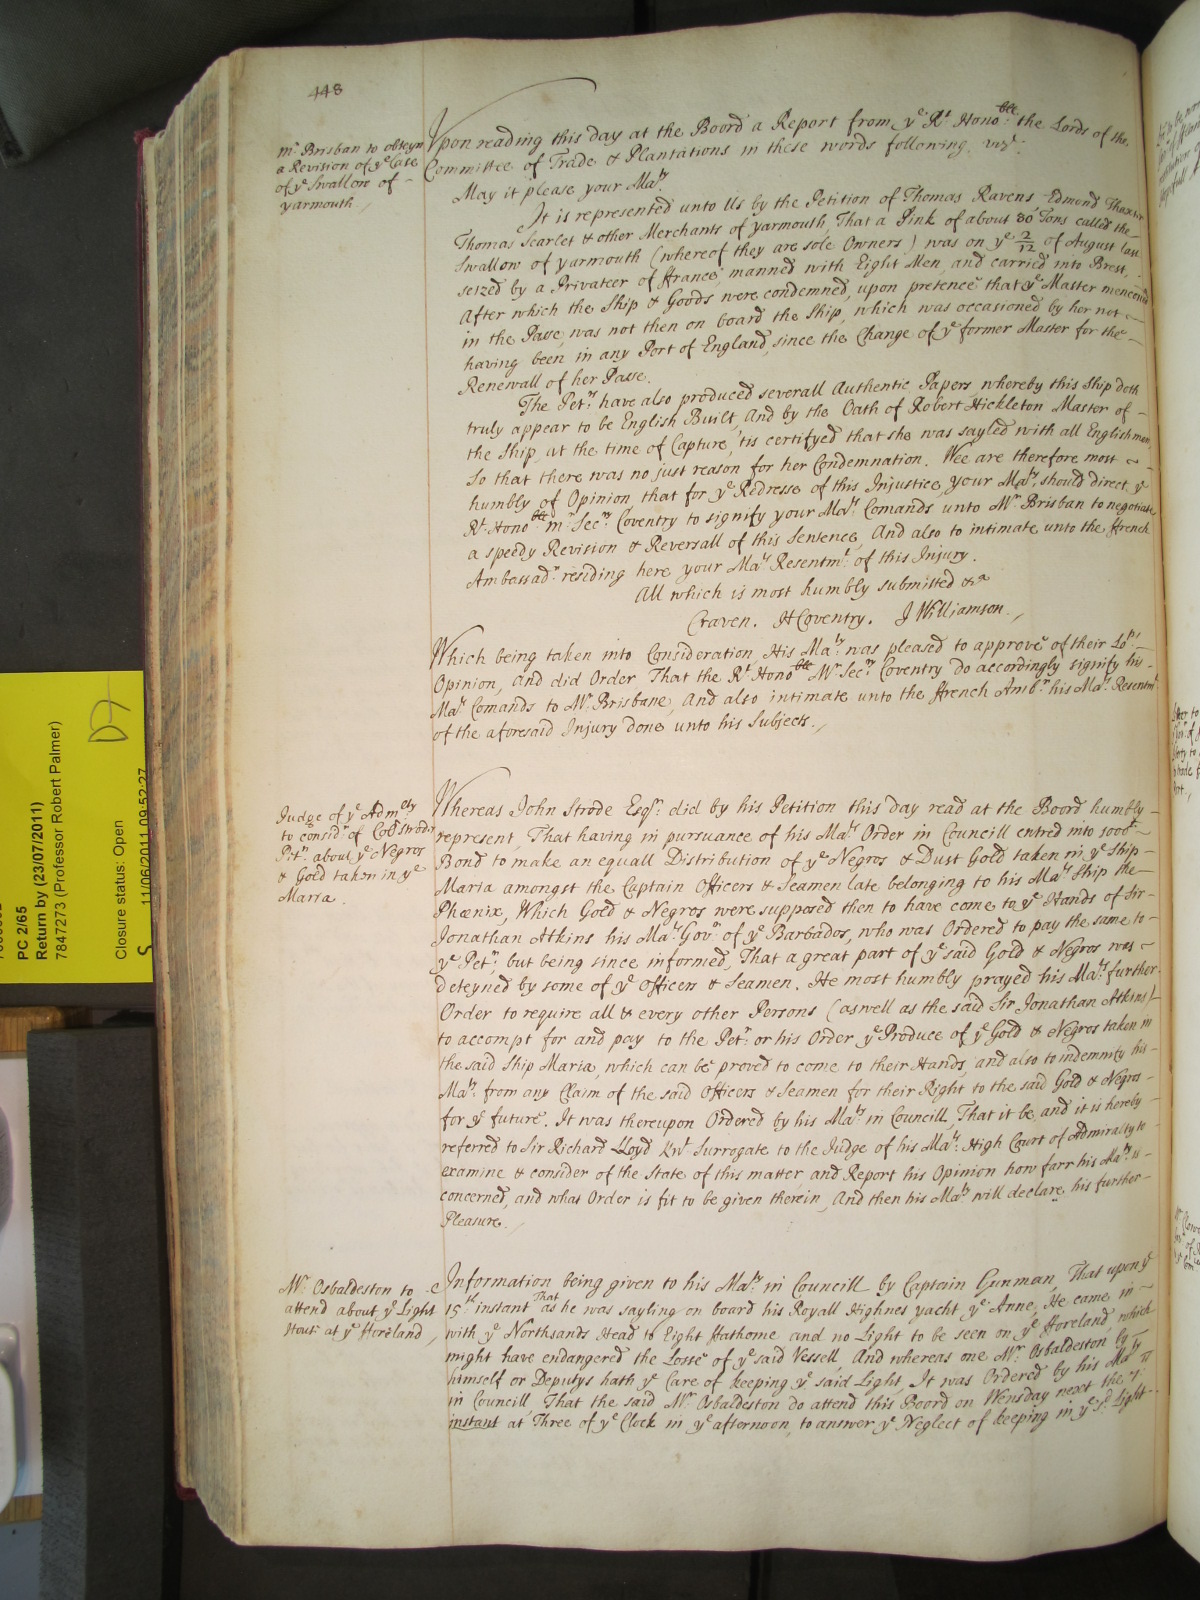 448
mr. Brisban to obteyn
a Revision of ye Case
of ye Swallow of -
yarmouth
Vpon reading this day at the Boord a Report from ye Rt. Honoble. the Lords of the
Committee of Trade & Plantations in these words following. vizt.
May it please your Maty.
It is represented unto Us by the Petition of Thomas Ravens Edmond Thaxter
Thomas Scarlet & other Merchants of yarmouth, That a Pink of about 80 Tons called the
Swallow of yarmouth (whereof they are sole Owners) was on ye 2/12 of August last
seized by a Privateer of ffrance, manned with Eight Men, and carried into Brest,
After which the Ship & Goods were condemned, upon pretence that ye Master mencioned
in the Passe, was not then on board the Ship, which was occasioned by her not
having been in any Port of England, since the Change of ye former Master for the
Renewall of her Passe.
The Petrs. have also produced severall Authentic Papers, whereby this Ship doth
truly appear to be English Built, And by the Oath of Robert Hickleton Master of
the Ship, at the time of Capture, 'tis certifyed that she was sayled with all Englishmen,
So that there was no just reason for her Condemnation. Wee are therefore most
humbly of Opinion that for ye Redresse of this Injustice, your Maty. should direct ye
Rt. Honoble. mr. Secry. Coventry to signify your Mats. Comands unto Mr. Brisban to negotiate
a speedy Revision & Reversall of this Sentence, And also to intimate unto the ffrench
Ambassadr. residing here your Mats Resentmt. of this Injury.
All which is most humbly submitted &ca
Craven. HCoventry. J Williamson.
Which being taken into Consideration, His Maty. was pleased to approve of their Lopps.
Opinion, and did Order That the Rt. Honoble Mr. Secry. Coventry do accordingly signify his
Mats Comands to Mr. Brisbane, And also intimate unto the ffrench Ambr. his Mats. Resentmt
of the aforesaid Injury done unto his Subjects.
Judge of ye Admelty
to considr. of Coll Strodes
Petn. about ye Negros
& Gold taken in ye
Maria.
Whereas John Strode Esqr. did by his Petition this day read at the Boord humbly
represent, That having in pursuance of his Mats. Order in Councill entred into 5000£
Bond to make an equall Distribution of ye Negros & Dust Gold taken in ye Ship
Maria amongst the Captain Officers & Seamen late belonging to his Mats Ship the
Phœnix, Which Gold & Negros were supposed then to have come to ye Hands of Sir
Jonathan Atkins his Mats. Govr. of ye Barbados, who was Ordered to pay the same to
ye Petr. but being since informed, That a great part of ye said Gold & Negros was
deteyned by some of ye Officers & Seamen. He most humbly prayed his Mats. further
Order to require all & every other Persons (aswell as the said Sir Jonathan Atkins)
to accompt for and pay to the Petr. or his Order ye Produce of ye Gold & Negros taken in
the said Ship Maria, which can be proved to come to their Hands, and also to indemnify his
Maty. from any Claim of the said Officers & Seamen for their Right to the said Gold & Negros
for ye future. It was thereupon Ordered by his Maty. in Councill, That it be, and it is hereby
referred to Sir Richard Lloyd Knt. Surrogate to the Judge of his Mats. High Court of Admiralty to
examine & consider of the State of this matter, and Report his Opinion how farr his Maty. is
concerned, and what Order is fit to be given therein, And then his Maty. will declare his further
Pleasure.
Mr. Osbaldeston to
attend about ye Light
House at ye fforeland
Information being given to his Maty. in Councill by Captain Gunman, That upon ye
15th. instant That as he was sayling on board his Royall Highnes yacht ye Anne, He came in
with ye Northsands Head to Eight ffathome and no Light to be seen on ye fforeland, which
might have endangered the Losse of ye said Vessell, And whereas one Mr. Osbaldeston by
himself or Deputys hath ye Care of keeping ye said Light, It was Ordered by his Maty
in Councill, That the said Mr. Osbaldeston do attend this Board on Wensday next the
instant at Three of ye Clock in ye afternoon, to answer ye Neglect of keeping in ye sd. Light
PC 2/65
Return by (23/07/2011)
7847273 (Professor Robert Palmer)
Closure status: Open
S 11/06/2011 09:52:27